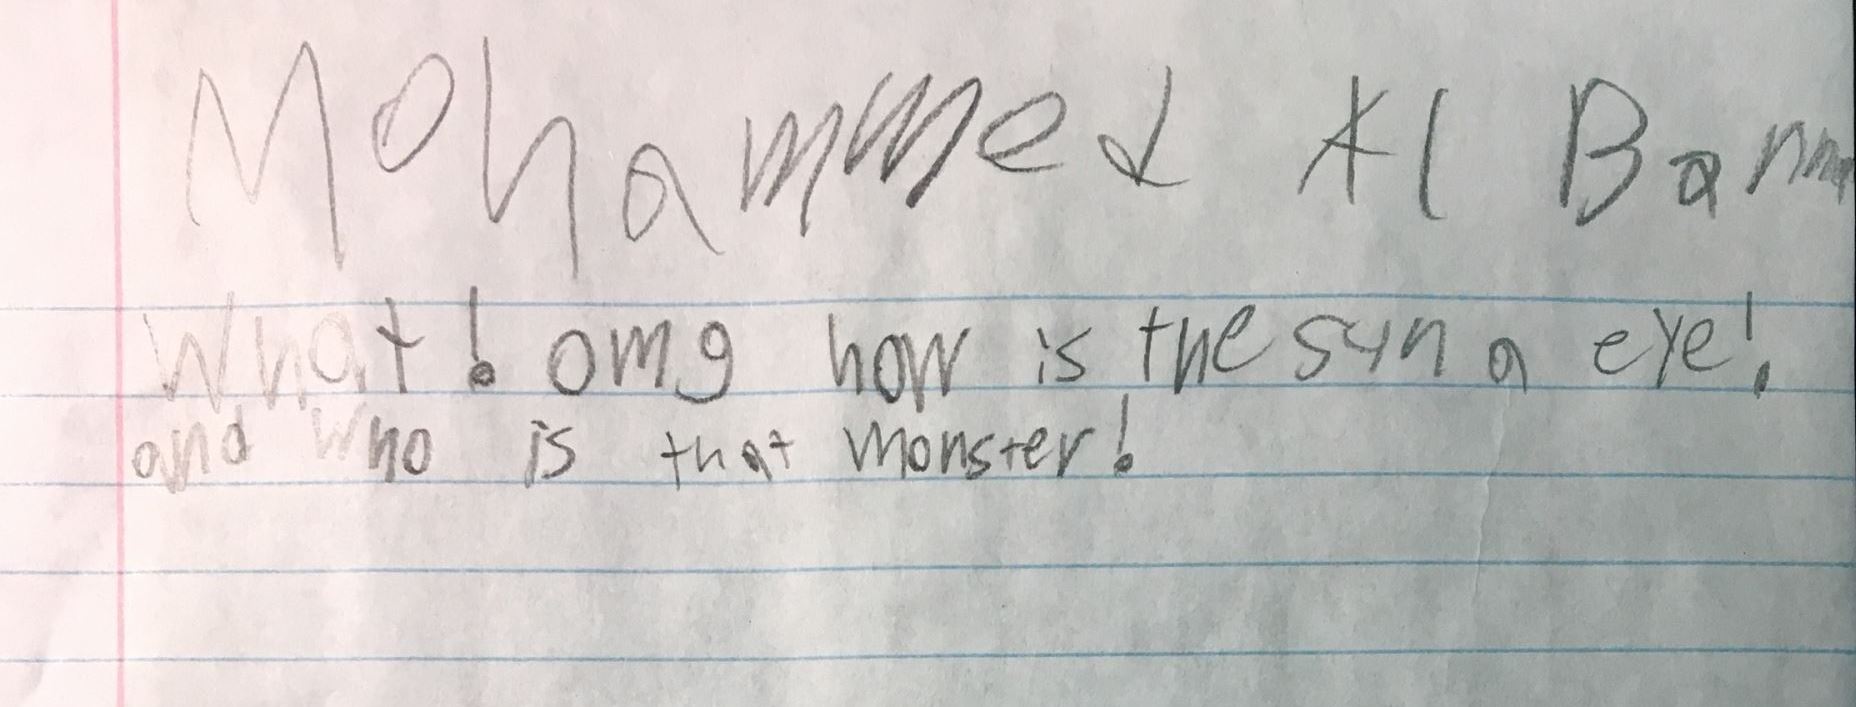 Mohammed Al
What! omg how is the sun a eye!
and who is that monster!